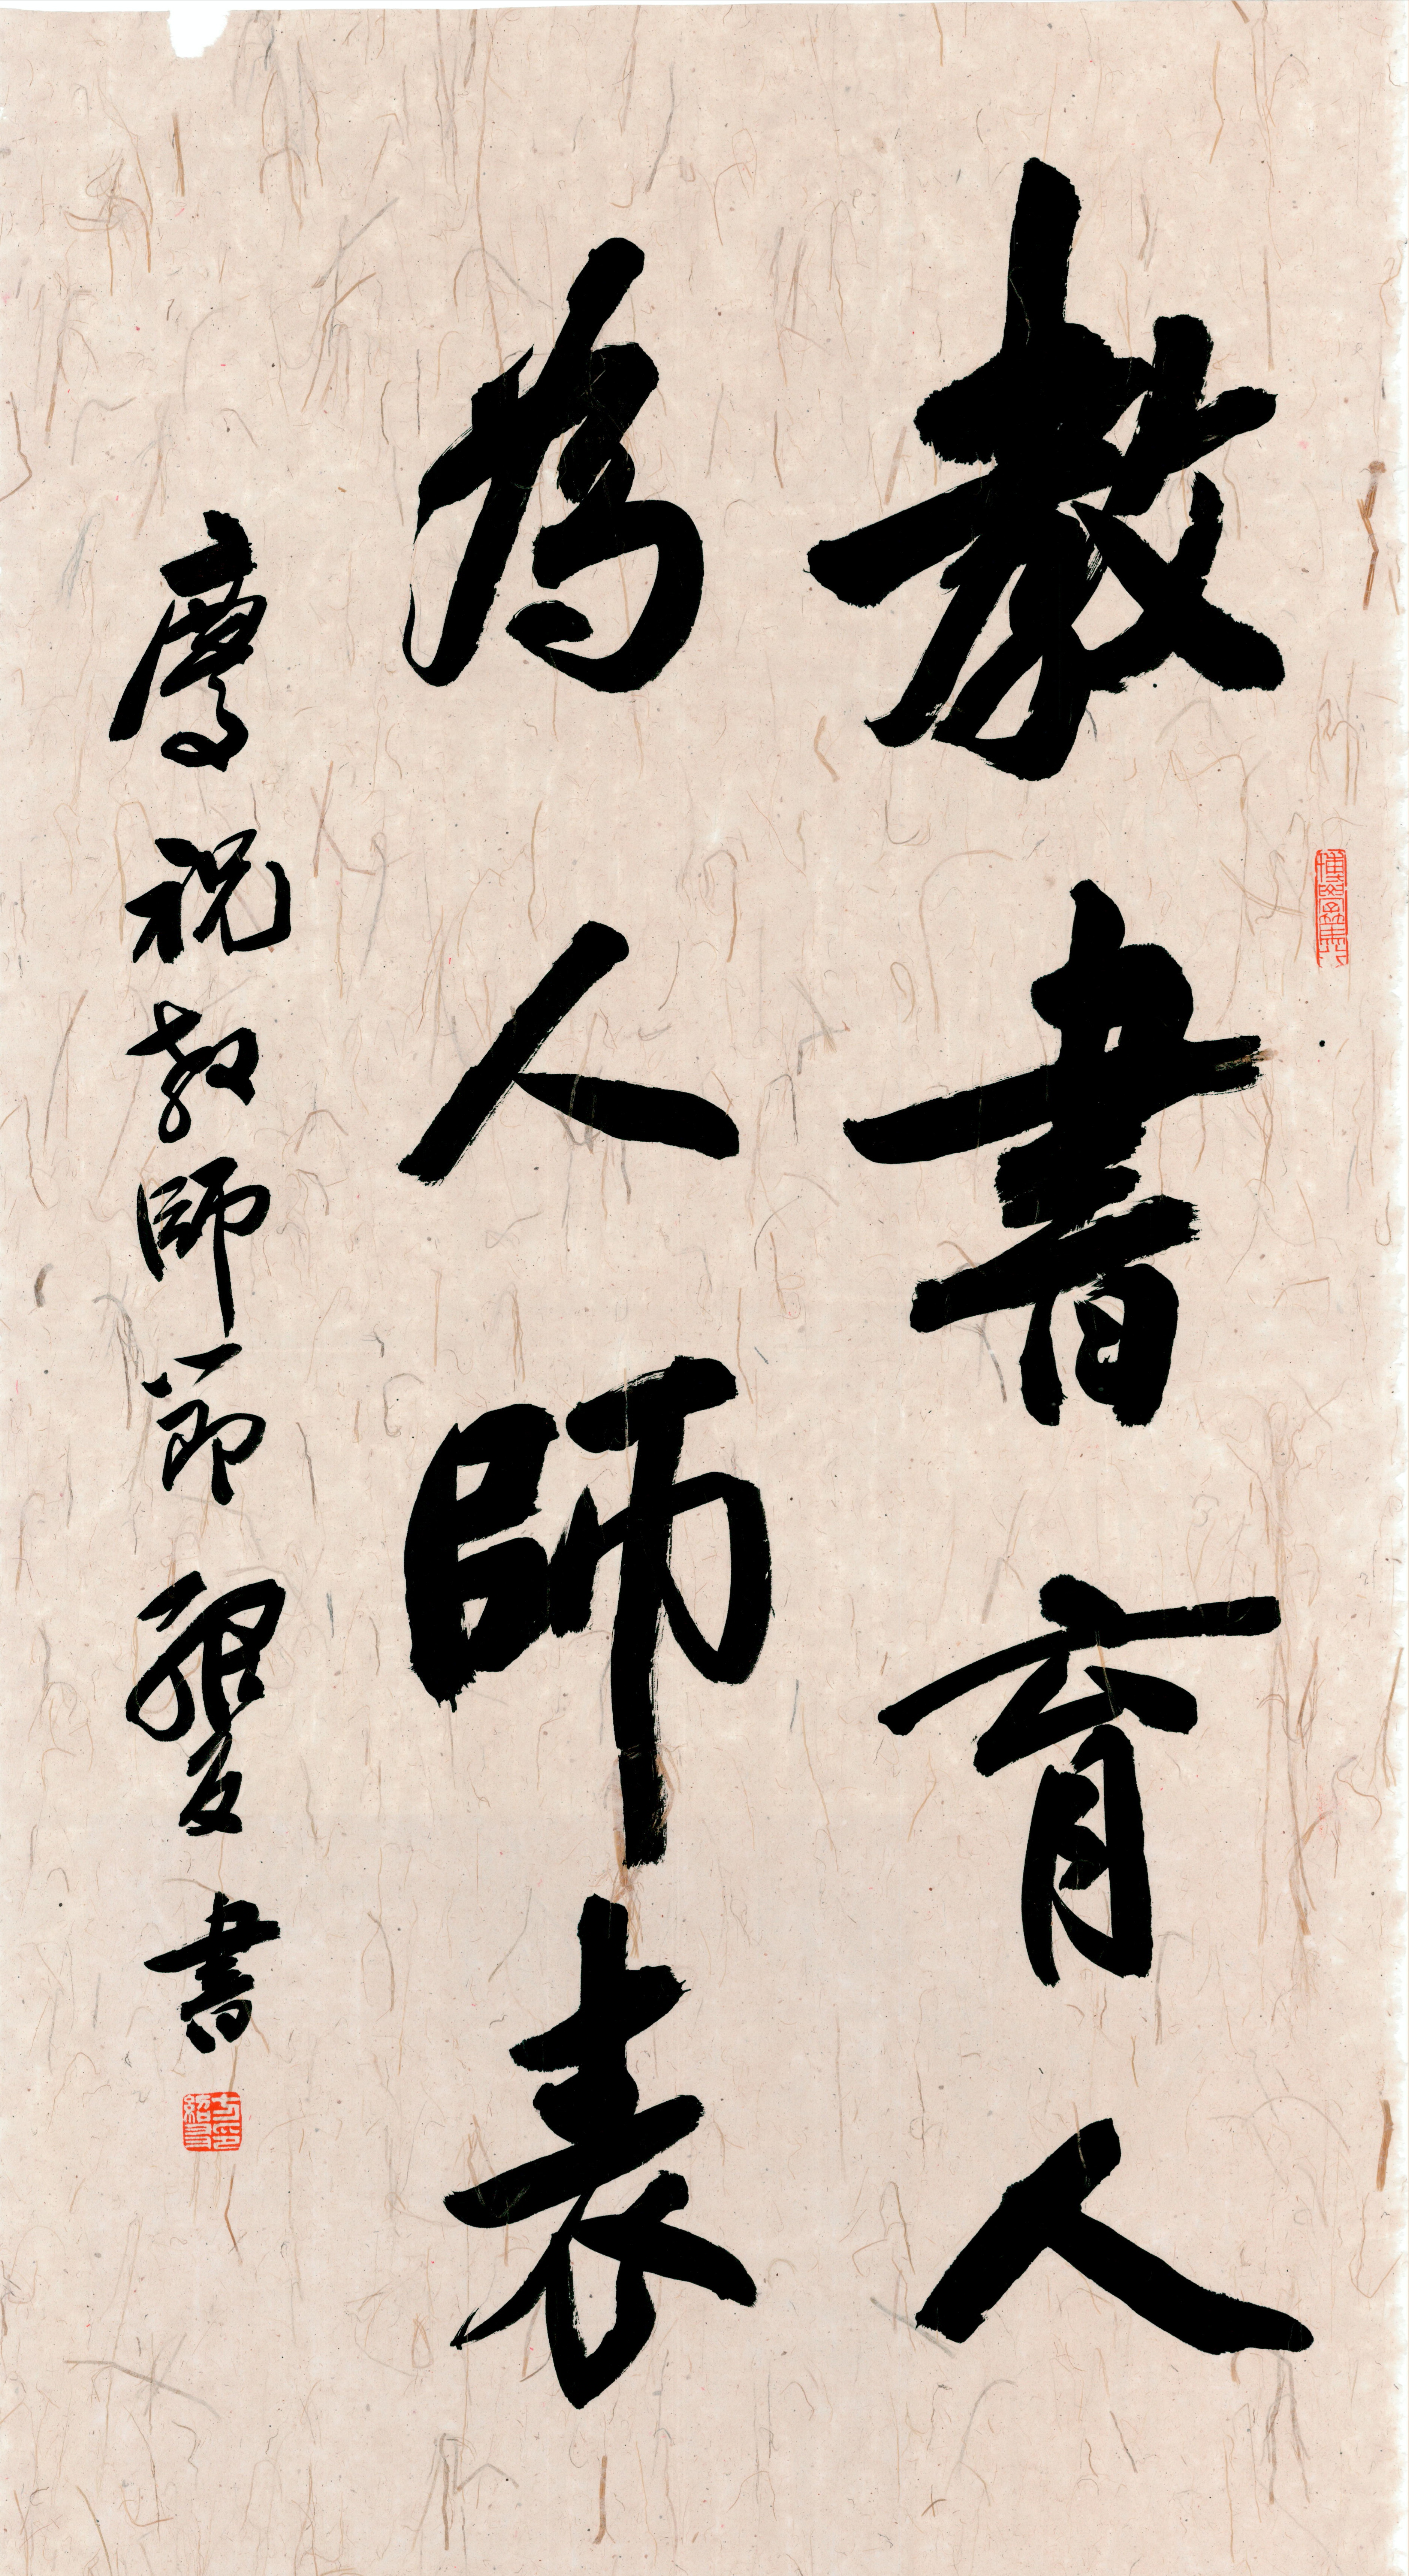 教書育人
為人師表
慶祝教師節 書